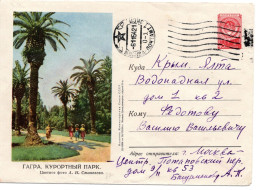 Куда Крым. Ялта
Водопадная ул.
дом 1 кв 2
Кому Федотову
Василию Васильевичу
Адрес отправителя: г. Москва-
Центр, Потаповский пер.
дом 9/11 кв 53
ГАГРА. КУРОРТНЫЙ ПАРК.
Цветное фото